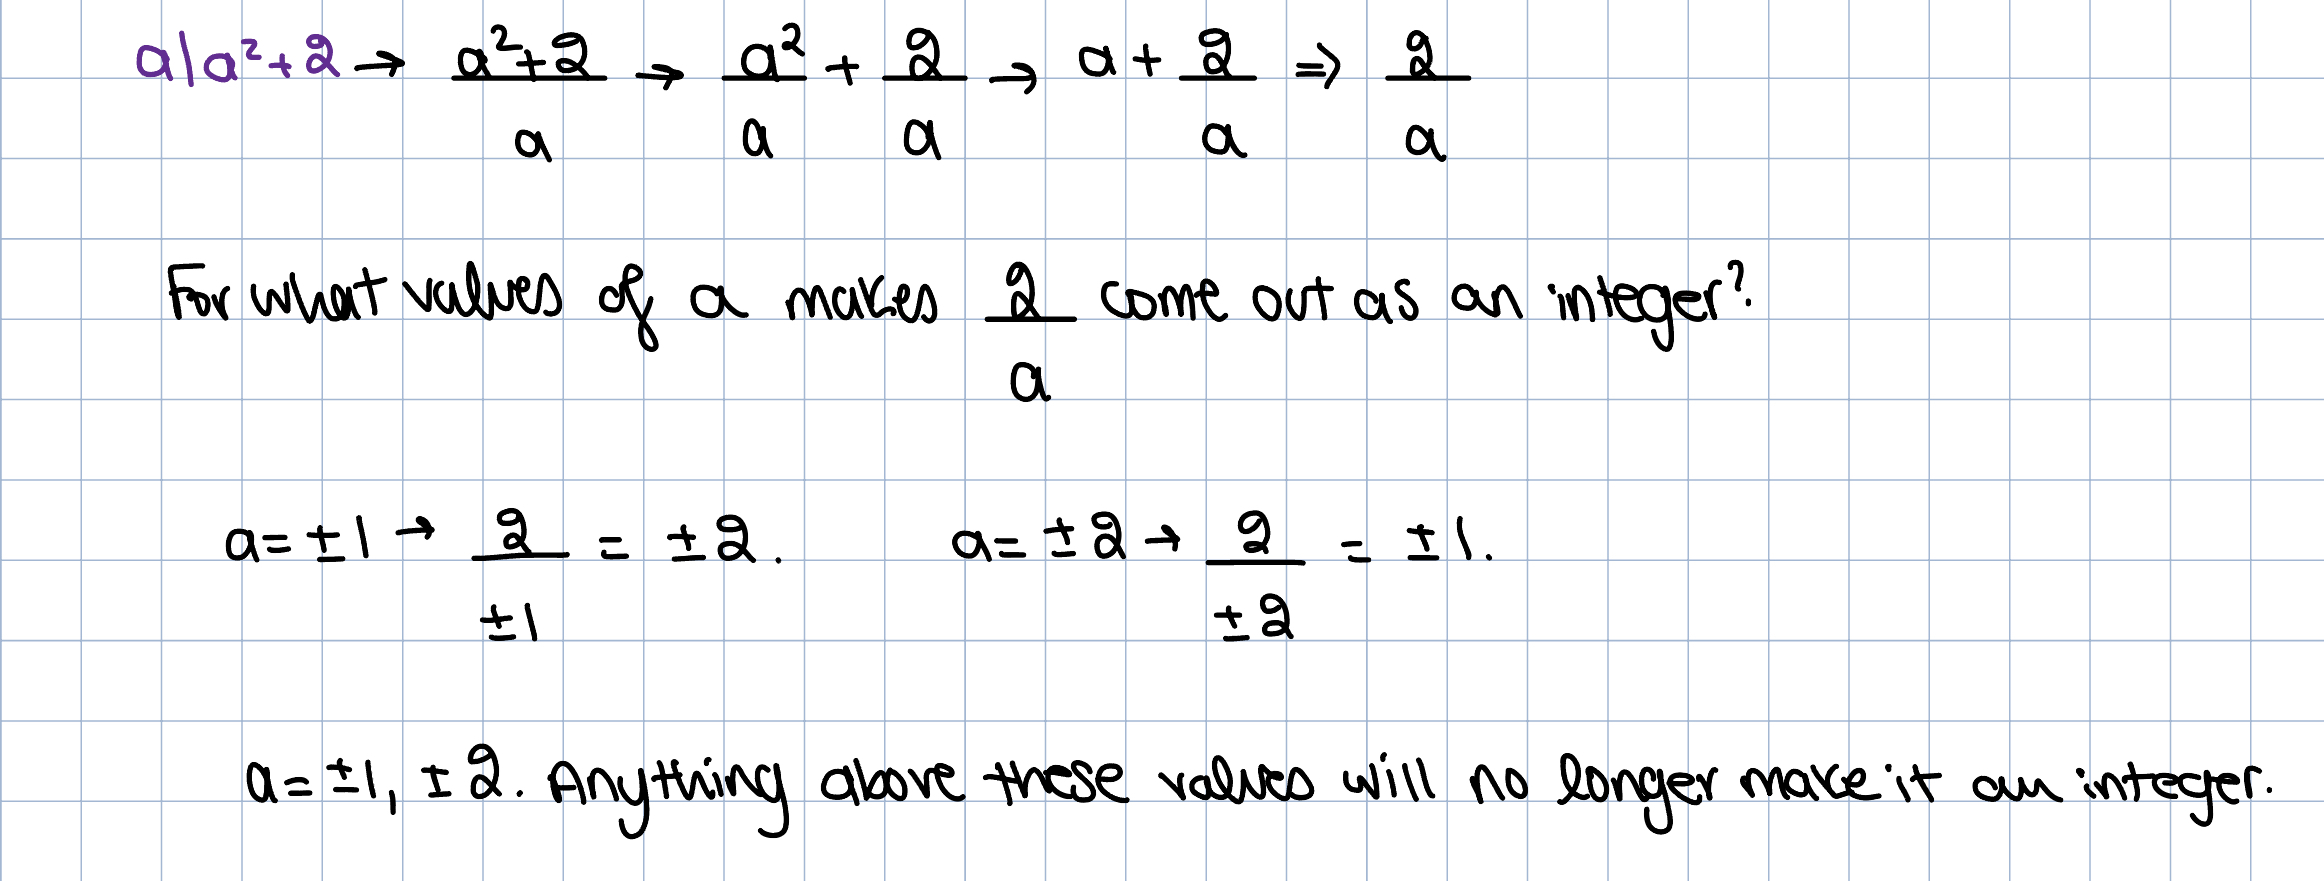 a|a²+2 → a²+2/a → a²/a + 2/a → a + 2/a ⇒ 2/a
For what values of a makes 2/a come out as an integer?
a = ±1 → 2/±1 = ±2. a = ±2 → 2/±2 = ±1.
a = ±1, ±2. Anything above these values will no longer make it an integer.